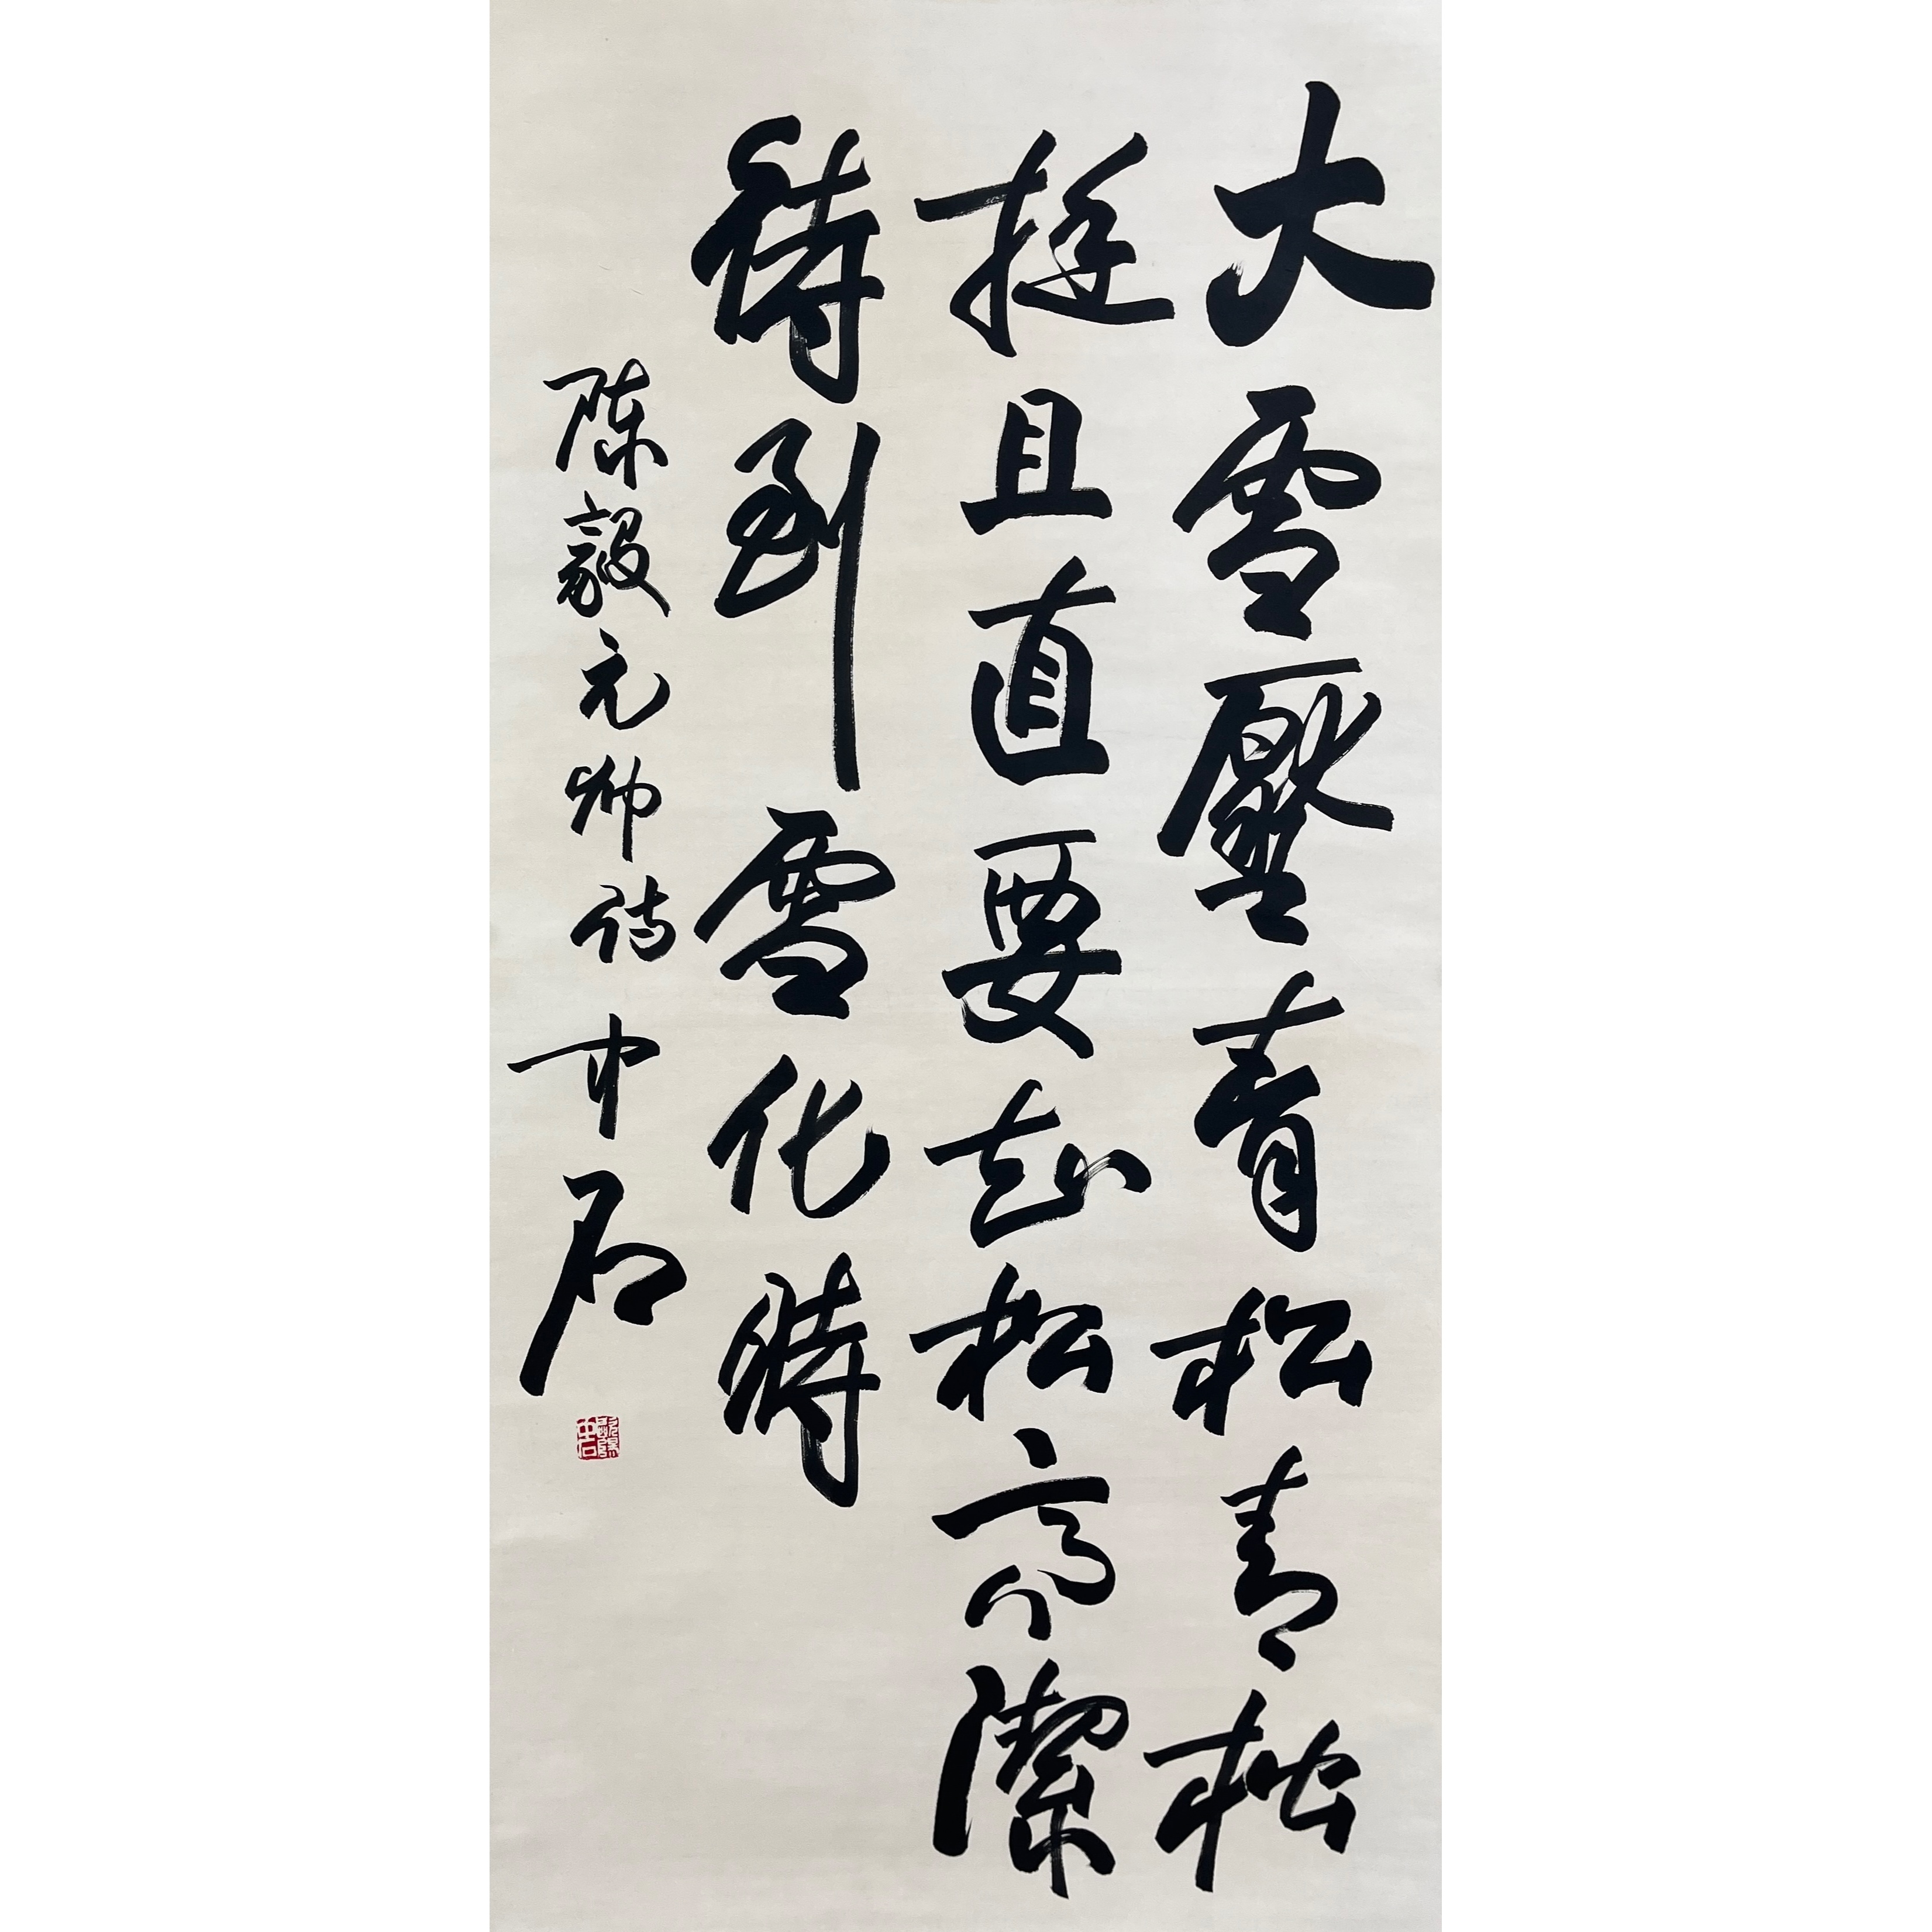 大雪壓青松青松
挺且直要知松高潔
待到雪化時
陈毅元帅诗中石